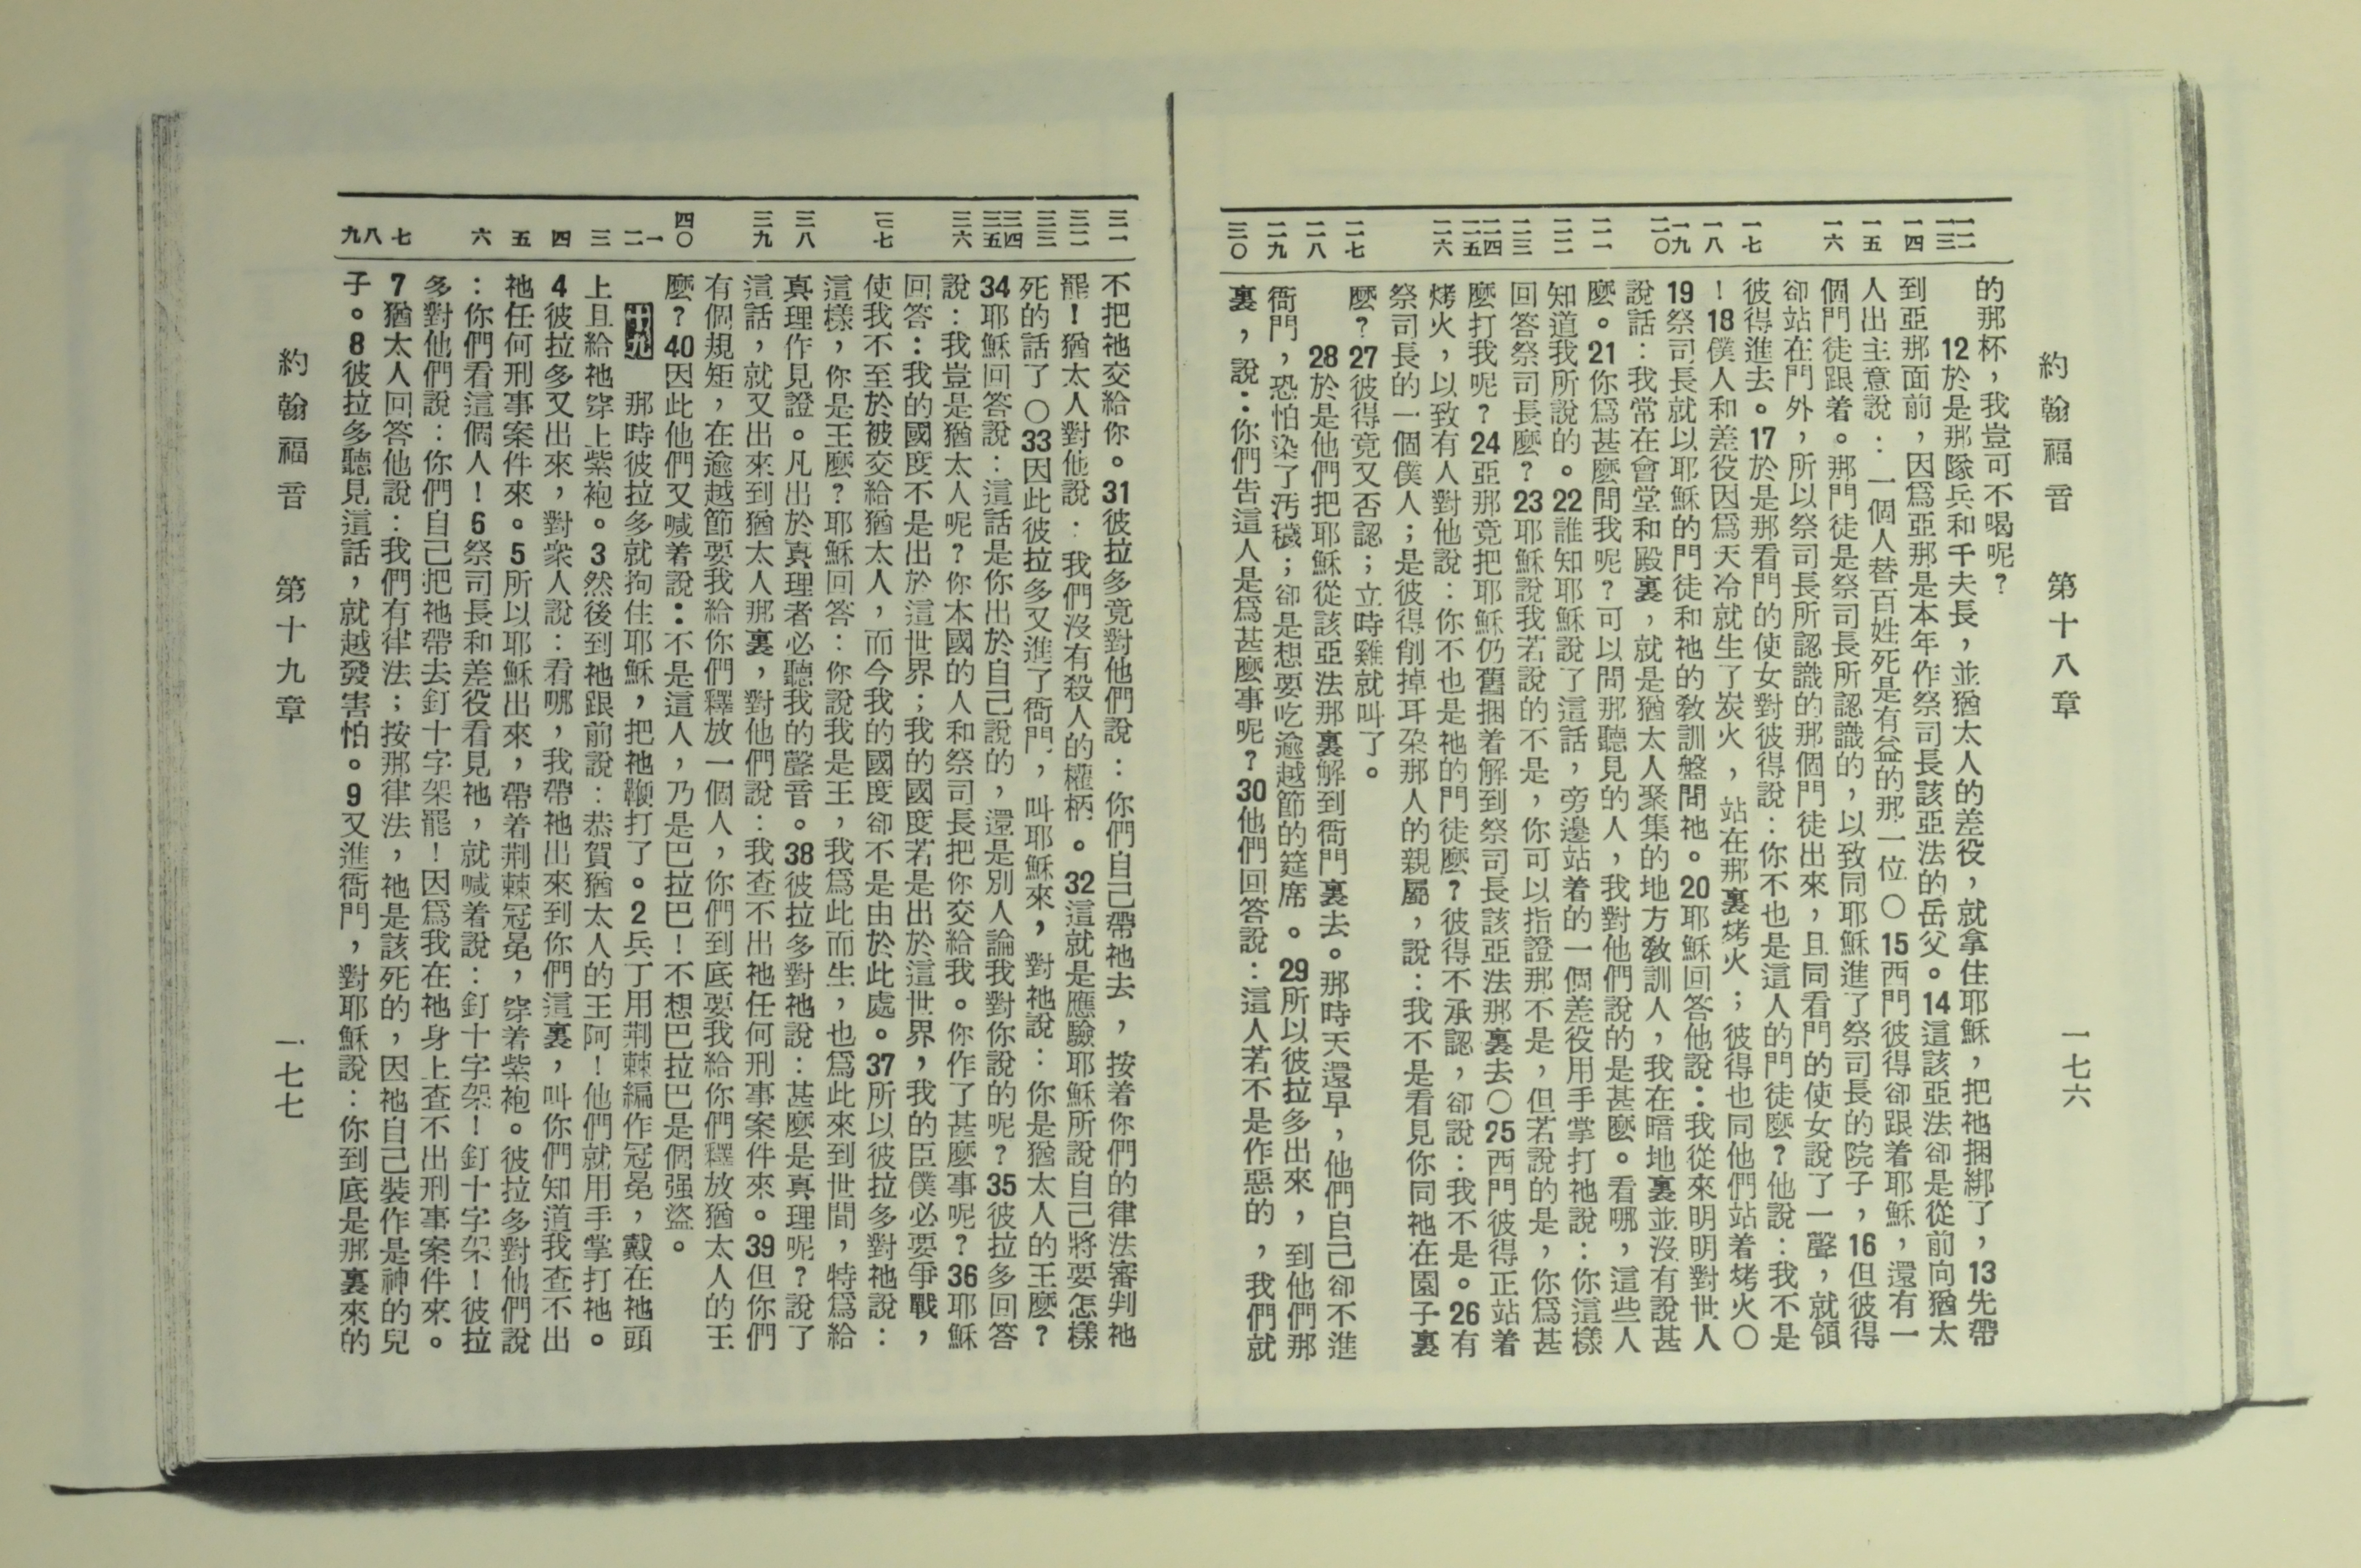 約翰福音　第十八章　一七六
一二 一三 一四 一五 一六 一七 一八 一九 二〇 二一 二二 二三 二四 二五 二六 二七 二八 二九 三〇
的那杯，我豈可不喝呢？
12於是那隊兵和千夫長，並猶太人的差役，就拿住耶穌，把祂捆綁了，13先帶
到亞那面前，因爲亞那是本年作祭司長該亞法的岳父。14這該亞法卻是從前向猶太
人出主意說：一個人替百姓死是有益的那一位〇15西門彼得卻跟着耶穌，還有一
個門徒跟着。那門徒是祭司長所認識的，以致同耶穌進了祭司長的院子，16但彼得
卻站在門外，所以祭司長所認識的那個門徒出來，且同看門的使女說了一聲，就領
彼得進去。17於是那看門的使女對彼得說：你不也是這人的門徒麼？他說：我不是
！18僕人和差役因爲天冷就生了炭火，站在那裏烤火；彼得也同他們站着烤火〇
19祭司長就以耶穌的門徒和祂的敎訓盤問祂。20耶穌回答他說：我從來明明對世人
說話：我常在會堂和殿裏，就是猶太人聚集的地方敎訓人，我在暗地裏並沒有說甚
麼。21你爲甚麼問我呢？可以問那聽見的人，我對他們說的是甚麼。看哪，這些人
知道我所說的。22誰知耶穌說了這話，旁邊站着的一個差役用手掌打祂說：你這樣
回答祭司長麼？23耶穌說我若說的不是，你可以指證那不是，但若說的是，你爲甚
麼打我呢？24亞那竟把耶穌仍舊捆着解到祭司長該亞法那裏去〇25西門彼得正站着
烤火，以致有人對他說：你不也是祂的門徒麼？彼得不承認，卻說：我不是。26有
祭司長的一個僕人；是彼得削掉耳朶那人的親屬，說：我不是看見你同祂在園子裏
麼？27彼得竟又否認；立時雞就叫了。
28於是他們把耶穌從該亞法那裏解到衙門裏去。那時天還早，他們自己卻不進
衙門，恐怕染了汚穢；卻是想要吃逾越節的筵席。29所以彼拉多出來，到他們那
裏，說：你們告這人是爲甚麼事呢？30他們回答說：這人若不是作惡的，我們就
三一 三二 三三 三四 三五 三六 三七 三八 三九 四〇 一 二 三 四 五 六 七 八 九
不把祂交給你。31彼拉多竟對他們說：你們自己帶祂去，按着你們的律法審判祂
罷！猶太人對他說：我們沒有殺人的權柄。32這就是應驗耶穌所說自己將要怎樣
死的話了〇33因此彼拉多又進了衙門，叫耶穌來，對祂說：你是猶太人的王麼？
34耶穌回答說：這話是你出於自己說的，還是別人論我對你說的呢？35彼拉多回答
說：我豈是猶太人呢？你本國的人和祭司長把你交給我。你作了甚麼事呢？36耶穌
回答：我的國度不是出於這世界；我的國度若是出於這世界，我的臣僕必要爭戰，
使我不至於被交給猶太人，而今我的國度卻不是由於此處。37所以彼拉多對祂說：
這樣，你是王麼？耶穌回答：你說我是王，我爲此而生，也爲此來到世間，特爲給
真理作見證。凡出於真理者必聽我的聲音。38彼拉多對祂說：甚麼是真理呢？說了
這話，就又出來到猶太人那裏，對他們說：我查不出祂任何刑事案件來。39但你們
有個規矩，在逾越節要我給你們釋放一個人，你們到底要我給你們釋放猶太人的王
麼？40因此他們又喊着說：不是這人，乃是巴拉巴！不想巴拉巴是個强盜。
十九　那時彼拉多就拘住耶穌，把祂鞭打了。2兵丁用荆棘編作冠冕，戴在祂頭
上且給祂穿上紫袍。3然後到祂跟前說：恭賀猶太人的王阿！他們就用手掌打祂。
4彼拉多又出來，對衆人說：看哪，我帶祂出來到你們這裏，叫你們知道我查不出
祂任何刑事案件來。5所以耶穌出來，帶着荆棘冠冕，穿着紫袍。彼拉多對他們說
：你們看這個人！6祭司長和差役看見祂，就喊着說：釘十字架！釘十字架！彼拉
多對他們說：你們自己把祂帶去釘十字架罷！因爲我在祂身上查不出刑事案件來。
7猶太人回答他說：我們有律法；按那律法，祂是該死的，因祂自己裝作是神的兒
子。8彼拉多聽見這話，就越發害怕。9又進衙門，對耶穌說：你到底是那裏來的
約翰福音　第十九章　一七七